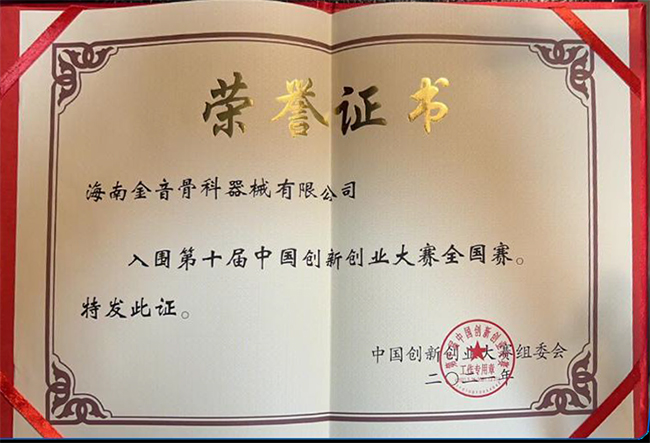 荣誉证书
海南金音骨科器械有限公司
入围第十届中国创新创业大赛全国赛。
特发此证。
中国创新创业大赛组委会
二〇二 年
工作专用章